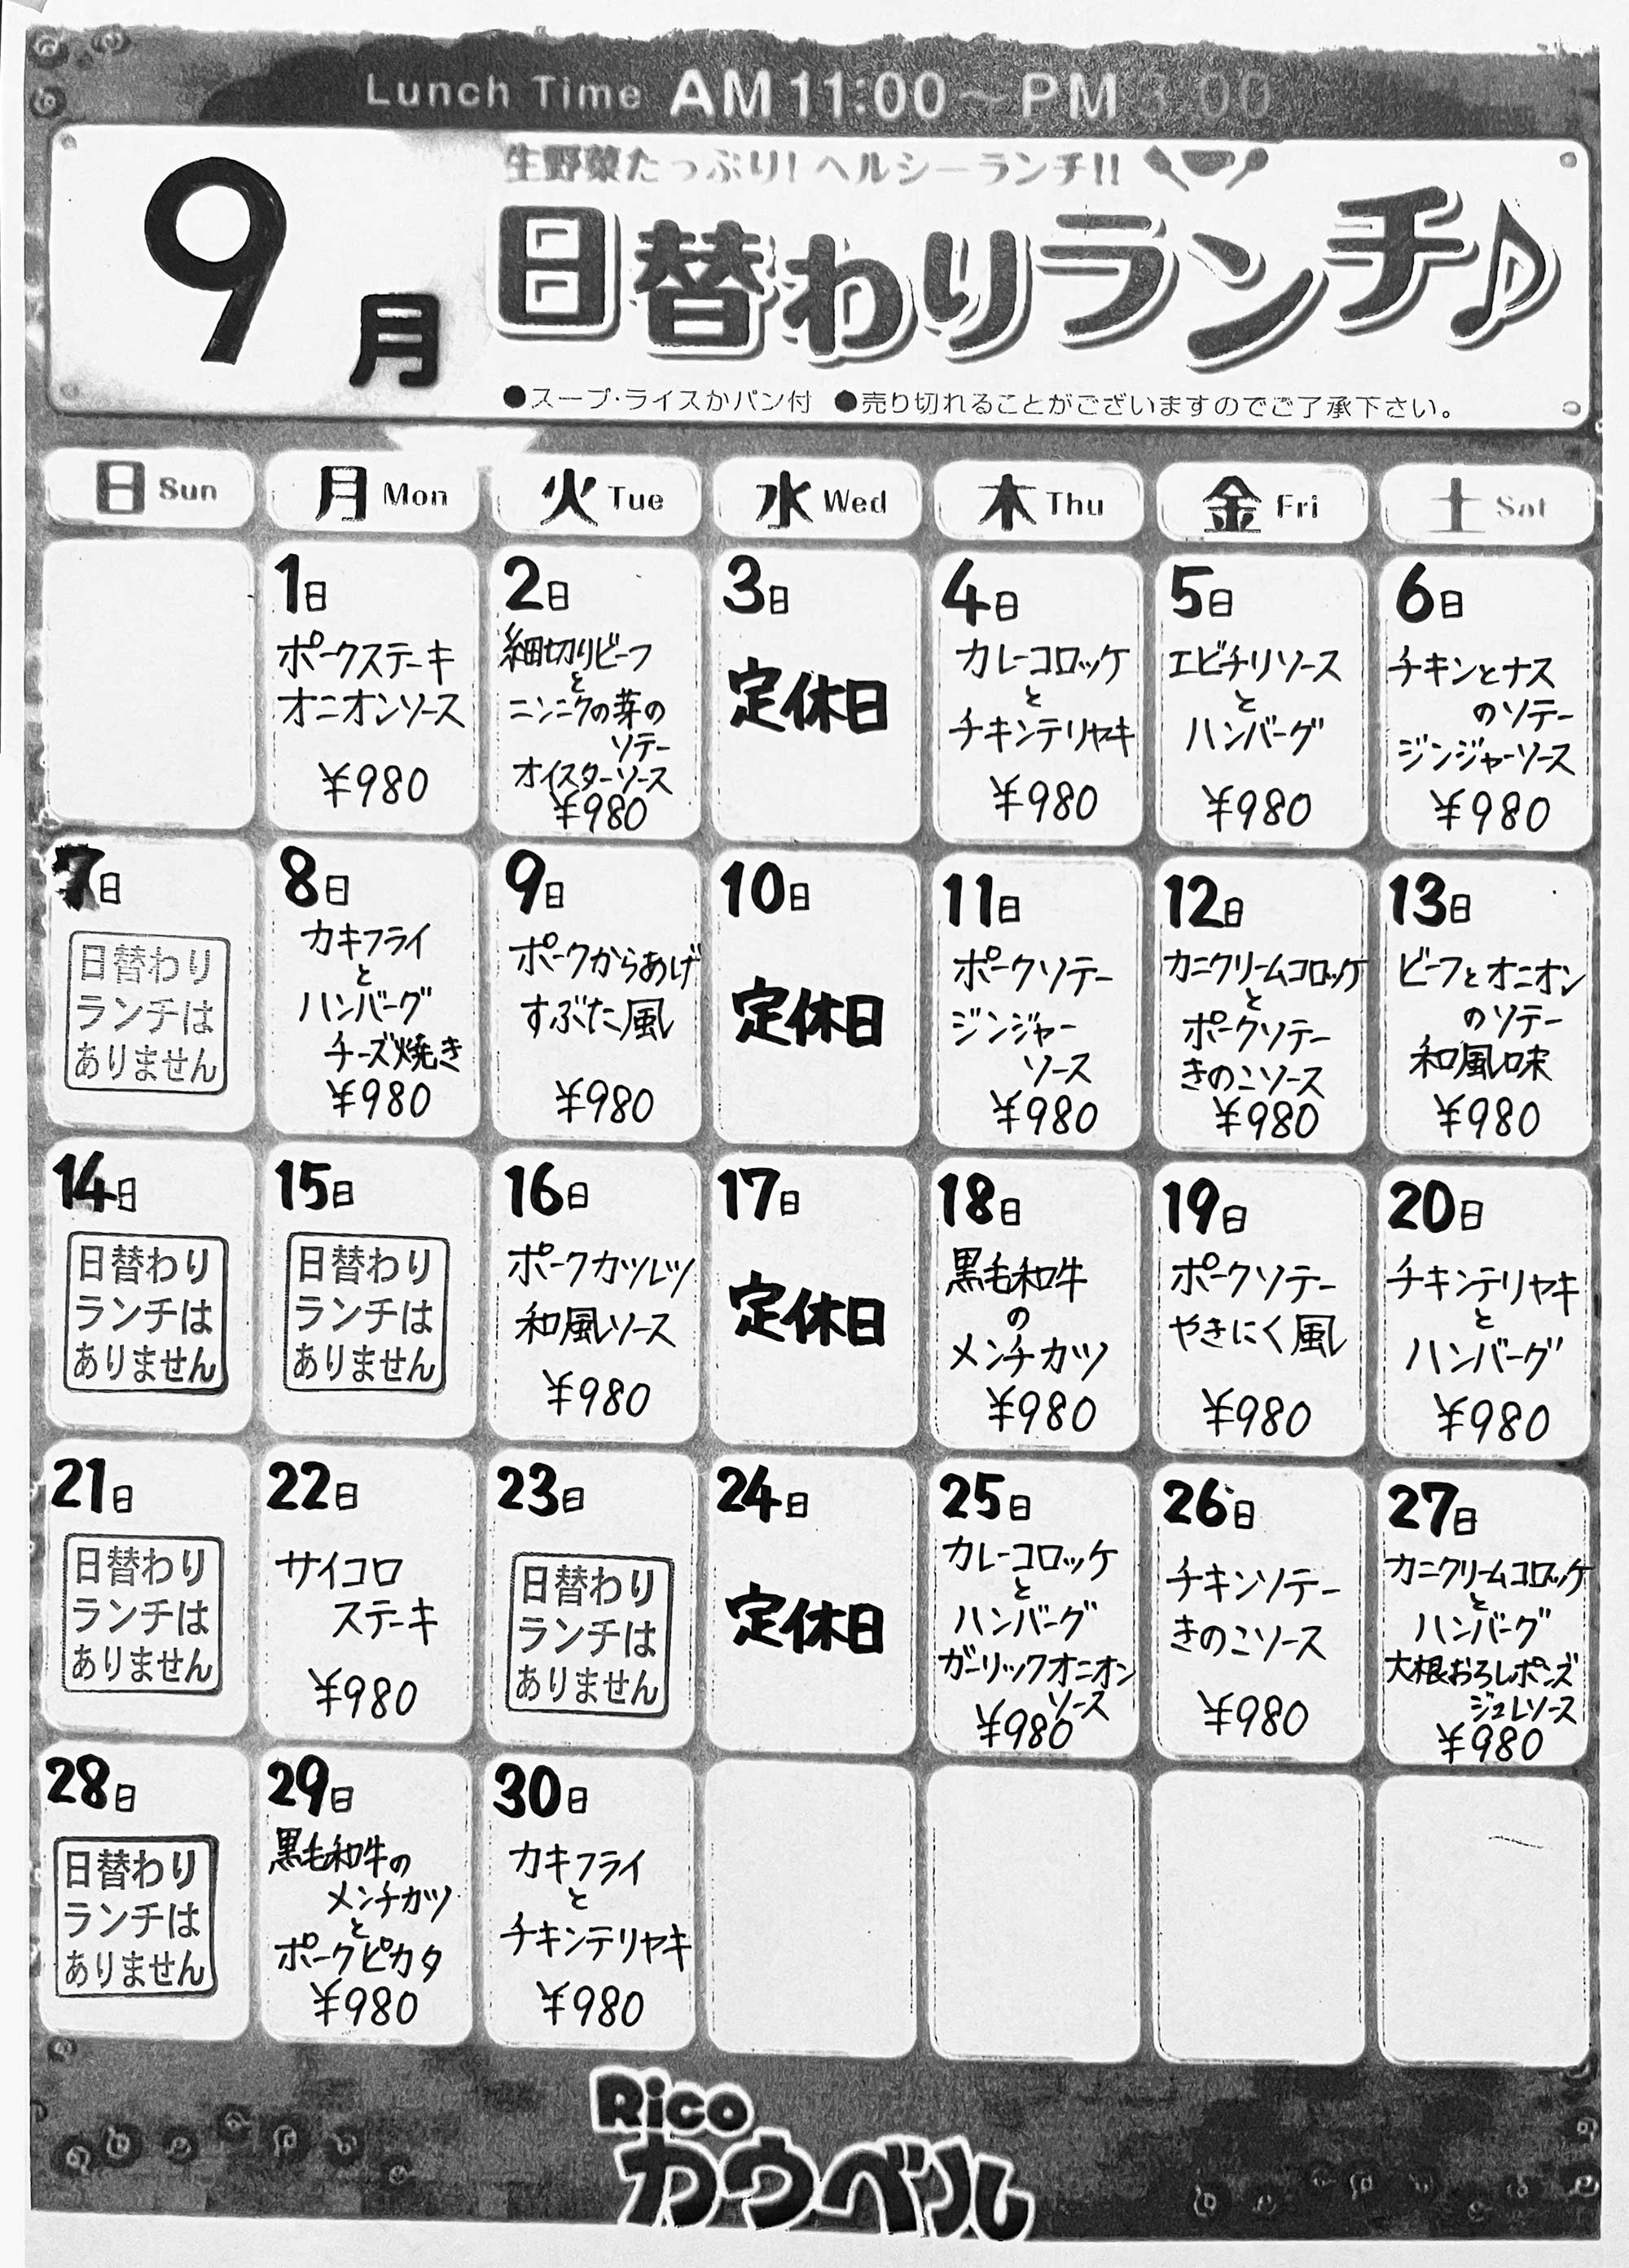 Lunch Time AM 11:00～PM 3:00
9月
生野菜たっぷり！ヘルシーランチ!!
日替わりランチ♪
●スープ・ライスかパン付 ●売り切れることがございますのでご了承下さい。
日 Sun
月 Mon
火 Tue
水 Wed
木 Thu
金 Fri
土 Sat
1日
ポークステーキ
オニオンソース
¥980
2日
細切りビーフ
と
ニンニクの芽の
ソテー
オイスターソース
¥980
3日
定休日
4日
カレーコロッケ
と
チキンテリヤキ
¥980
5日
エビチリソース
と
ハンバーグ
¥980
6日
チキンとナス
のソテー
ジンジャーソース
¥980
7日
日替わり
ランチは
ありません
8日
カキフライ
と
ハンバーグ
チーズ焼き
¥980
9日
ポークからあげ
すぶた風
¥980
10日
定休日
11日
ポークソテー
ジンジャー
ソース
¥980
12日
カニクリームコロッケ
と
ポークソテー
きのこソース
¥980
13日
ビーフとオニオン
のソテー
和風味
¥980
14日
日替わり
ランチは
ありません
15日
日替わり
ランチは
ありません
16日
ポークカツレツ
和風ソース
¥980
17日
定休日
18日
黒毛和牛
の
メンチカツ
¥980
19日
ポークソテー
やきにく風
¥980
20日
チキンテリヤキ
と
ハンバーグ
¥980
21日
日替わり
ランチは
ありません
22日
サイコロ
ステーキ
¥980
23日
日替わり
ランチは
ありません
24日
定休日
25日
カレーコロッケ
と
ハンバーグ
ガーリックオニオン
ソース
¥980
26日
チキンソテー
きのこソース
¥980
27日
カニクリームコロッケ
と
ハンバーグ
大根おろしポンズ
ジュレソース
¥980
28日
日替わり
ランチは
ありません
29日
黒毛和牛の
メンチカツ
と
ポークピカタ
¥980
30日
カキフライ
と
チキンテリヤキ
¥980
Rico
カウベル